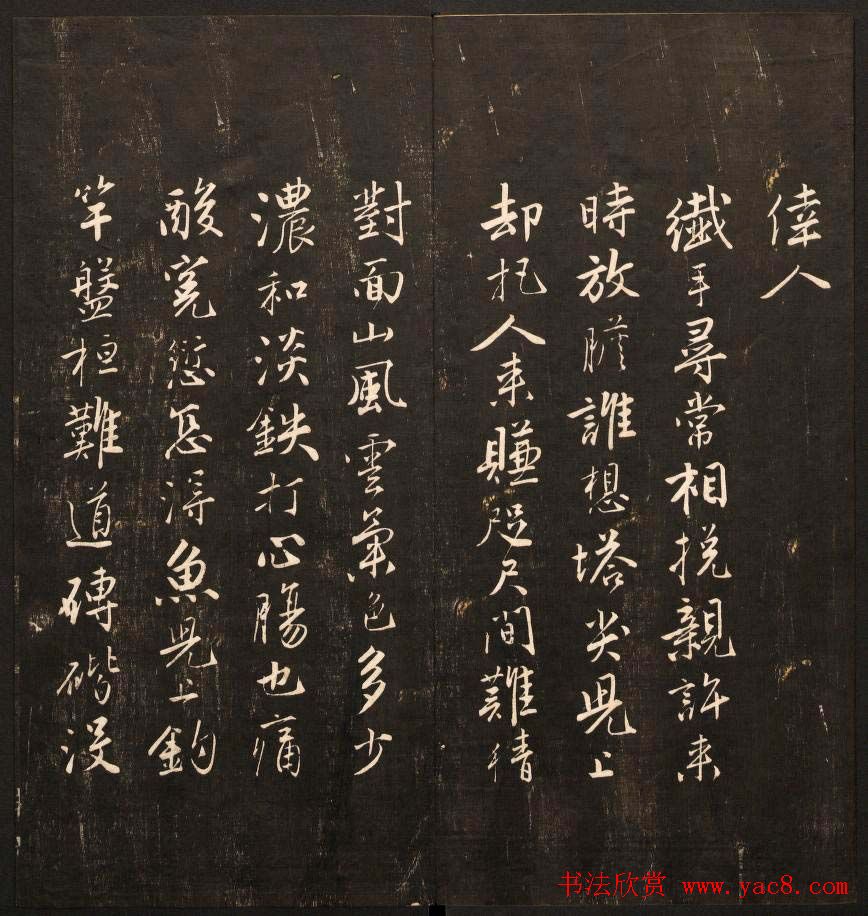 偉人
纖手尋常相挽親許来
時放膽誰想塔尖児上
却把人来賺咫尺間難猜
對面山風雲氣色多少
濃和淡鉄打心腸也痛
酸寃愆怎得魚児上鈎
竿盤桓難道磚没
书法欣赏 www.yac8.com